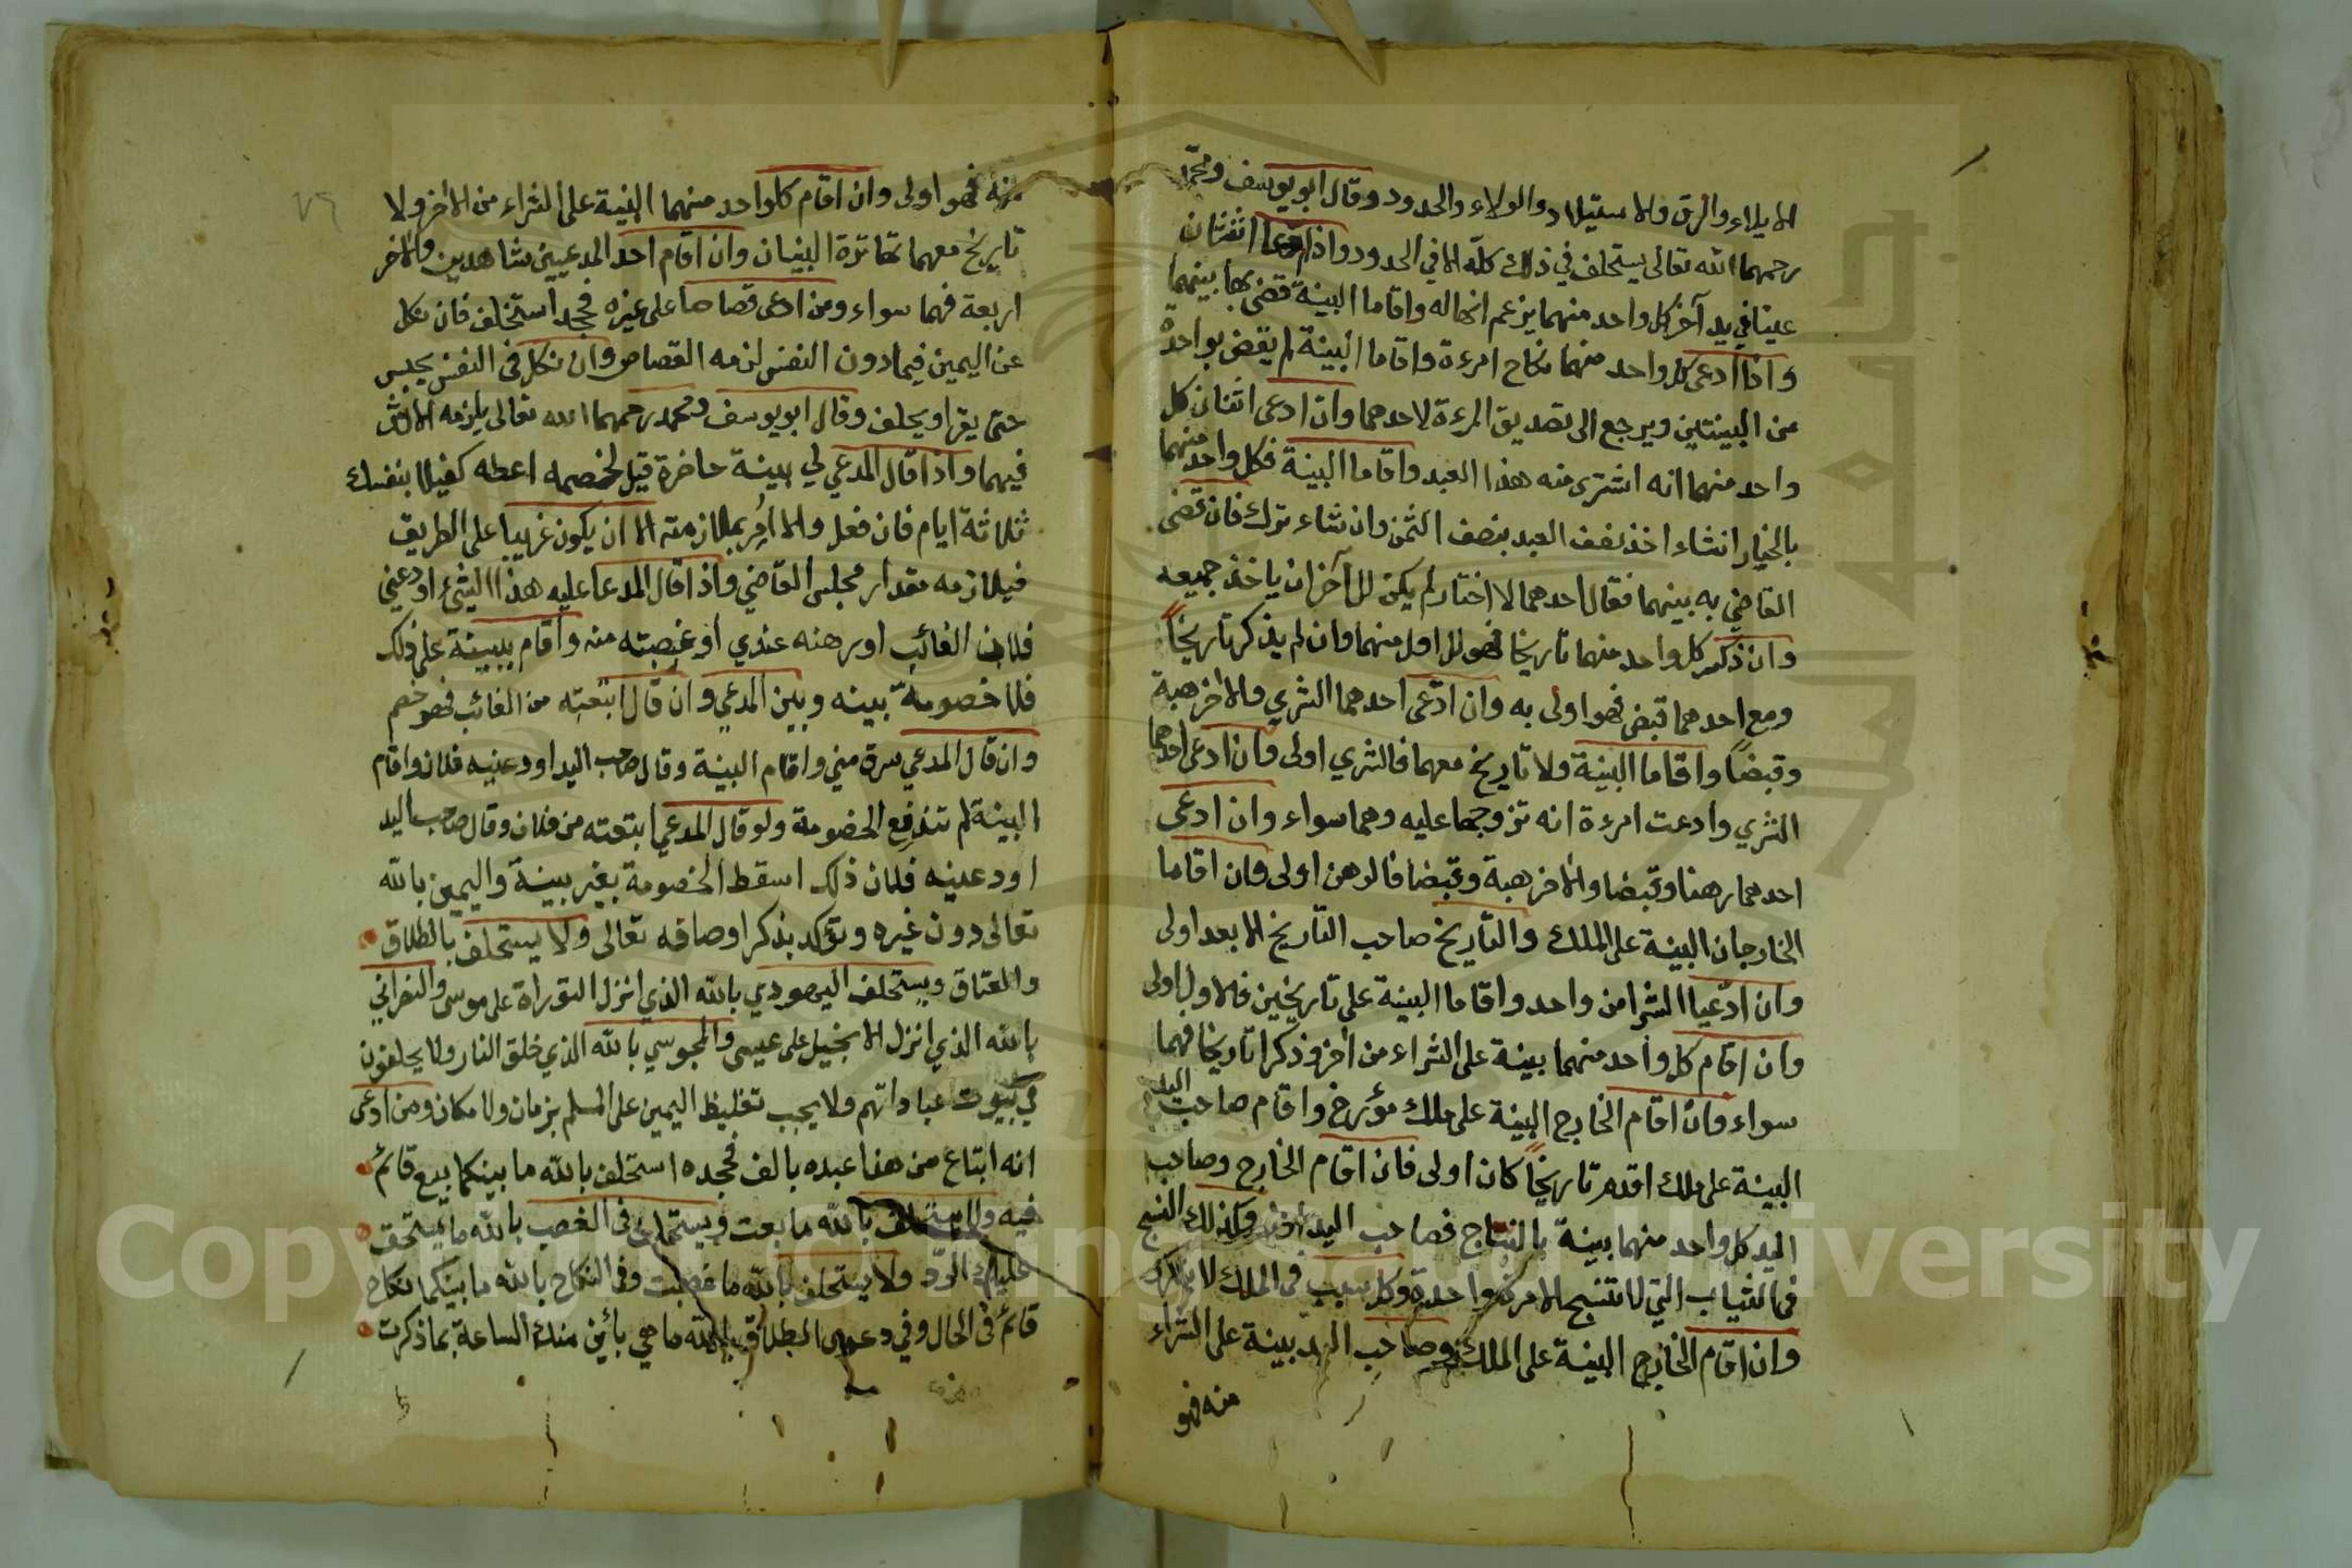 الايلاء والرق والاستيلاد والولاء والحدود وقال ابو يوسف ومحمد
رحمهما الله تعالى يستحلف في ذلك كله الا في الحدود واذا ادعا اثنان
عينا في يد آخر كل واحد منهما يزعم انها له واقاما البينة قضى بها بينهما
واذا ادعى كل واحد منهما نكاح امرءة واقاما البينة لم يقض بواحدة
من البينتين ويرجع الى تصديق المرءة لاحدهما وان ادعى اثنان كل
واحد منهما انه اشترى منه هذا العبد واقاما البينة فكل واحد منهما
بالخيار انشاء اخذ نصف العبد بنصف الثمن وان شاء ترك فان قضى
القاضي به بينهما فقال احدهما لا اختار لم يكن للآخر ان ياخذ جميعه
وان ذكر كل واحد منهما تاريخا فهو للاول منهما وان لم يذكر تاريخاً
ومع احدهما قبض فهو اولى به وان ادّعى احدهما الشري والاخر هبة
وقبضاً واقاما البينة ولا تاريخ معهما فالشري اولى وان ادعى احدهما
الشري وادعت امرءة انه تزوجها عليه وهما سواء وان ادعى
احدهما رهنا وقبضا والاخر هبة وقبضا فالرهن اولى وان اقاما
الخارجان البينة على الملك والتاريخ صاحب التاريخ الابعد اولى
وان ادّعيا الشرا من واحد واقاما البينة على تاريخين فالاول اولى
وان اقام كل واحد منهما بينة على الشراء من آخر وذكرا تاريخا فهما
سواء وان اقام الخارج البينة على ملك مؤرخ واقام صاحب اليد
البينة على ملك اقدم تاريخاً كان اولى فان اقام الخارج وصاحب
اليد كل واحد منهما بينة بالنتاج فصاحب اليد اولى وكذلك النسج
في الثياب التي لا تنسج الا مرة واحدة وكل سبب في الملك لا يتكرر
وان اقام الخارج البينة على الملك وصاحب اليد بينة على الشراء
منه فهو
منه فهو اولى وان اقام كلواحد منهما البينة على الشراء من الاخر ولا
تاريخ معهما تهاترة البينان وان اقام احد المدعيين شاهدين والاخر
اربعة فهما سواء ومن ادعى قصاصا على غيره فجحد استحلف فان نكل
عن اليمين فيما دون النفس لزمه القصاص وان نكل في النفس يحبس
حتى يقر او يحلف وقال ابو يوسف ومحمد رحمهما الله تعالى يلزمه الارش
فيهما واذا قال المدعي لي بينة حاضرة قيل لخصمه اعطه كفيلا بنفسك
ثلاثة ايام فان فعل والا امر بملازمته الا ان يكون غريبا على الطريق
فيلازمه مقدار مجلس القاضي واذا قال المدعا عليه هذا الشيء اودعني
فلان الغائب او رهنه عندي او غصبته منه واقام ببينة على ذلك
فلا خصومة بينه وبين المدعي وان قال ابتعته من الغائب فهو خصم
وان قال المدعي سرق مني واقام البينة وقال صاحب اليد اودعنيه فلان واقام
البينة لم تندفع الخصومة ولو قال المدعي ابتعته من فلان وقال صاحب اليد
اودعنيه فلان ذلك اسقط الخصومة بغير بينة واليمين بالله
تعالى دون غيره ويؤكد بذكر اوصافه تعالى ولا يستحلف بالطلاق
والعتاق ويستحلف اليهودي بالله الذي انزل التوراة على موسى والنصراني
بالله الذي انزل الانجيل على عيسى والمجوسي بالله الذي خلق النار ولا يحلفون
في بيوت عباداتهم ولا يجب تغليظ اليمين على المسلم بزمان ولا مكان ومن ادعى
انه ابتاع من هذا عبده بالف فجحده استحلف بالله ما بينكما بيع قائم
فيه ولا يستحلف بالله ما بعت ويستحلف في الغصب بالله ما يستحق
عليك الرد ولا يستحلف بالله ما غصبت وفي النكاح بالله ما بينكما نكاح
قائم في الحال وفي دعوى الطلاق بالله ما هي بائن منك الساعة بما ذكرت